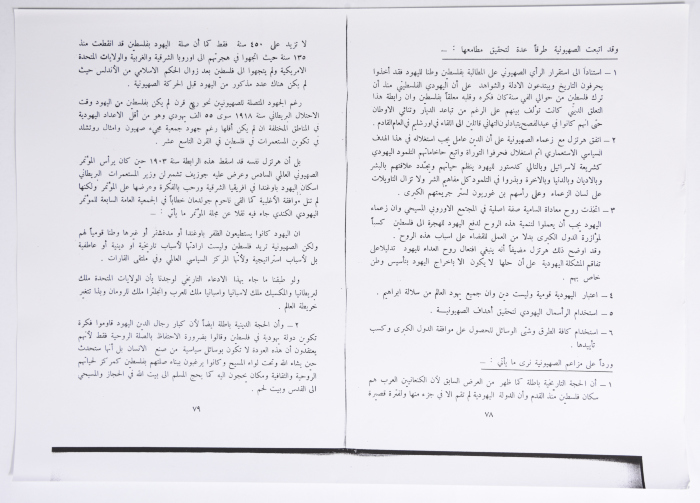 وقد اتبعت الصهيونية طرقاً عدة لتحقيق مطامعها : ...
١ – استناداً الى استقرار الرأي الصهيوني على المطالبة بفلسطين وطنا لليهود فقد أخذوا
يحرفون التاريخ ويبتدعون الادلة والشواهد على أن اليهودي الفلسطيني منذ أن
ترك فلسطين من حوالي الفي سنة كان فكره وقلبه معلقاً بفلسطين وان رابطة هذا
التعلق الديني كانت تؤلف بينهم على الرغم من تباعد الديار وتنائي الاوطان
حتى انهم كانوا في عيد الفصح يتبادلون التهاني قائلين الى اللقاء في اورشليم في العام القادم .
٢ – اتفق هرتزل مع زعماء الصهيونية على أن الدين عامل يجب استغلاله في هذا الهدف
السياسي الاستعماري اتم استغلال فحرفوا التوراة واتبع حاخاماتهم التلمود اليهودي
كشريعة لاسرائيل وبالتالي كدستور لليهود ينظم حياتهم ويحدد علاقتهم بالبشر
وبالاديان وبالدنيا وبالآخرة وبذروا في التلمود كل مفاهيم الشر ولا تزال التاويلات
على لسان الزعماء وعلى رأسهم بن غوريون لستر جريمتهم الكبرى .
٣ – اتخذت روح معاداة السامية صفة اصلية في المجتمع الاوروبي المسيحي وان زعماء
اليهود يجب أن يعملوا لتنمية هذه الروح لدفع اليهود للهجرة الى فلسطين كسباً
لمؤازرة الدول الكبرى بدلا من العمل للقضاء على اسباب هذه الروح .
وقد اوضح ذلك هرتزل مضيفاً أنه ينبغي افتعال روح العداء لليهود تدليلا على
تفاقم المشكلة اليهودية على أن حلها لا يكون الا باخراج اليهود بتأسيس وطن
خاص بهم .
٤ – اعتبار اليهودية قومية وليست دين وان جميع يهود العالم من سلالة ابراهيم .
٥ – استخدام الرأسمال اليهودي لتحقيق أهداف الصهيونيسة .
٦ – استخدام كافة الطرق وشتى الوسائل للحصول على موافقة الدول الكبرى وكسب
تأييدها .
ورداً على مزاعم الصهيونية نرى ما يأتي : ...
١ – أن الحجة التاريخية باطلة كما ظهر من العرض السابق لان الكنعانيين العرب هم
سكان فلسطين منذ القدم وأن الدولة اليهودية لم تقم الا في جزء منها ولفترة قصيرة
٧٨
لا تزيد على ٤٥٠ سنة فقط كما أن صلة اليهود بفلسطين قد انقطعت منذ
١٣٥ سنة حيث اتجهوا في هجرتهم الى اوروبا الشرقية والغربية والولايات المتحدة
الامريكية ولم يتجهوا الى فلسطين بعد زوال الحكم الاسلامي من الأندلس حيث
لم يكن هناك عدد مذكور من اليهود قبل الحركة الصهيونية .
رغم الجهود المتصلة للصهيونيين نحو ربع قرن لم يكن بفلسطين من اليهود وقت
الاحتلال البريطاني سنة ١٩١٨ سوى ٥٥ الف يهودي وهو من أقل الاعداد اليهودية
في المناطق المختلفة ان لم يكن أقلها رغم جهود جمعية محبي صهيون وامثال روتشلد
في تكوين المستعمرات في فلسطين في القرن التاسع عشر .
بل أن هرتزل نفسه قد اسقط هذه الرابطة سنة ١٩٠٣ حين كان يرأس المؤتمر
الصهيوني العالمي السادس وعرض عليه جوزيف تشمبرلن وزير المستعمرات البريطاني
اسكان اليهود باوغندا في افريقيا الشرقية ورحب بالفكرة وعرضها على المؤتمر ولكنها
لم تنل موافقة الأغلبية كما القى ناحوم جولدمان خطاباً في الجمعية العامة السابعة للمؤتمر
اليهودي الكندي جاء فيه نقلا عن مجلة المؤتمر ما يأتي : ...
ان اليهود كانوا يستطيعون الظفر باوغندا أو مدغشقر أو غيرها وطنا قومياً لهم
ولكن الصهيونية تريد فلسطين وليست ارادتها لأسباب تاريخية أو دينية أو عاطفية
بل لأسباب استراتيجية ولأنها المركز السياسي العالمي وفي ملتقى القارات .
ولو طبقنا ما جاء بهذا الادعاء التاريخي لوجدنا بأن الولايات المتحدة ملك
لبريطانيا والمكسيك ملك لاسبانيا واسبانيا ملك للعرب وانجلترا ملك للرومان وبذا تتغير
خريطة العالم .
٢ – وأن الحجة الدينية باطلة ايضاً لأن كبار رجال الدين اليهود قاوموا فكرة
تكوين دولة يهودية في فلسطين وقالوا بضرورة الاحتفاظ بالصلة الروحية فقط لأنهم
يعتقدون أن هذه العودة لا تكون بوسائل سياسية من صنع الانسان بل أنها ستحدث
حين يشاء الله وتحت لواء المسيح وكانوا يرغبون ببناء صلتهم بفلسطين كمركز لحياتهم
الروحية والثقافية ومكان يحجون اليه كما يحج المسلم الى بيت الله في الحجاز والمسيحي
الى القدس وبيت لحم .
٧٩